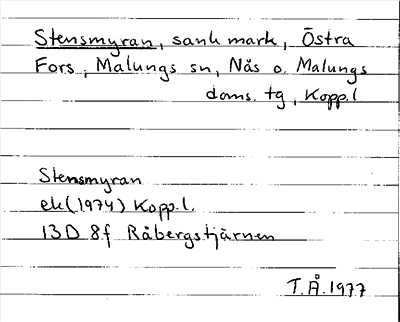 Stensmyran, sank mark, Östra
Fors, Malungs sn, Nås o. Malungs
doms. tg, Kopp.l
Stensmyran
ek (1974) Kopp.l.
13D 8f Råbergstjärnen
T.Å. 1977